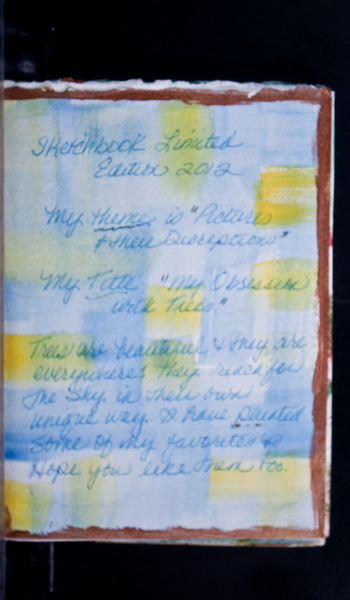 Sketchbook Limited
Edition 2012
My theme is "Pictures
& their Discriptions"
My Title "My Obsession
with Trees"
Trees are beautiful & they are
everywhere! They reach for
the sky in their own
unique way. I have painted
some of my favorites &
Hope you like them too.